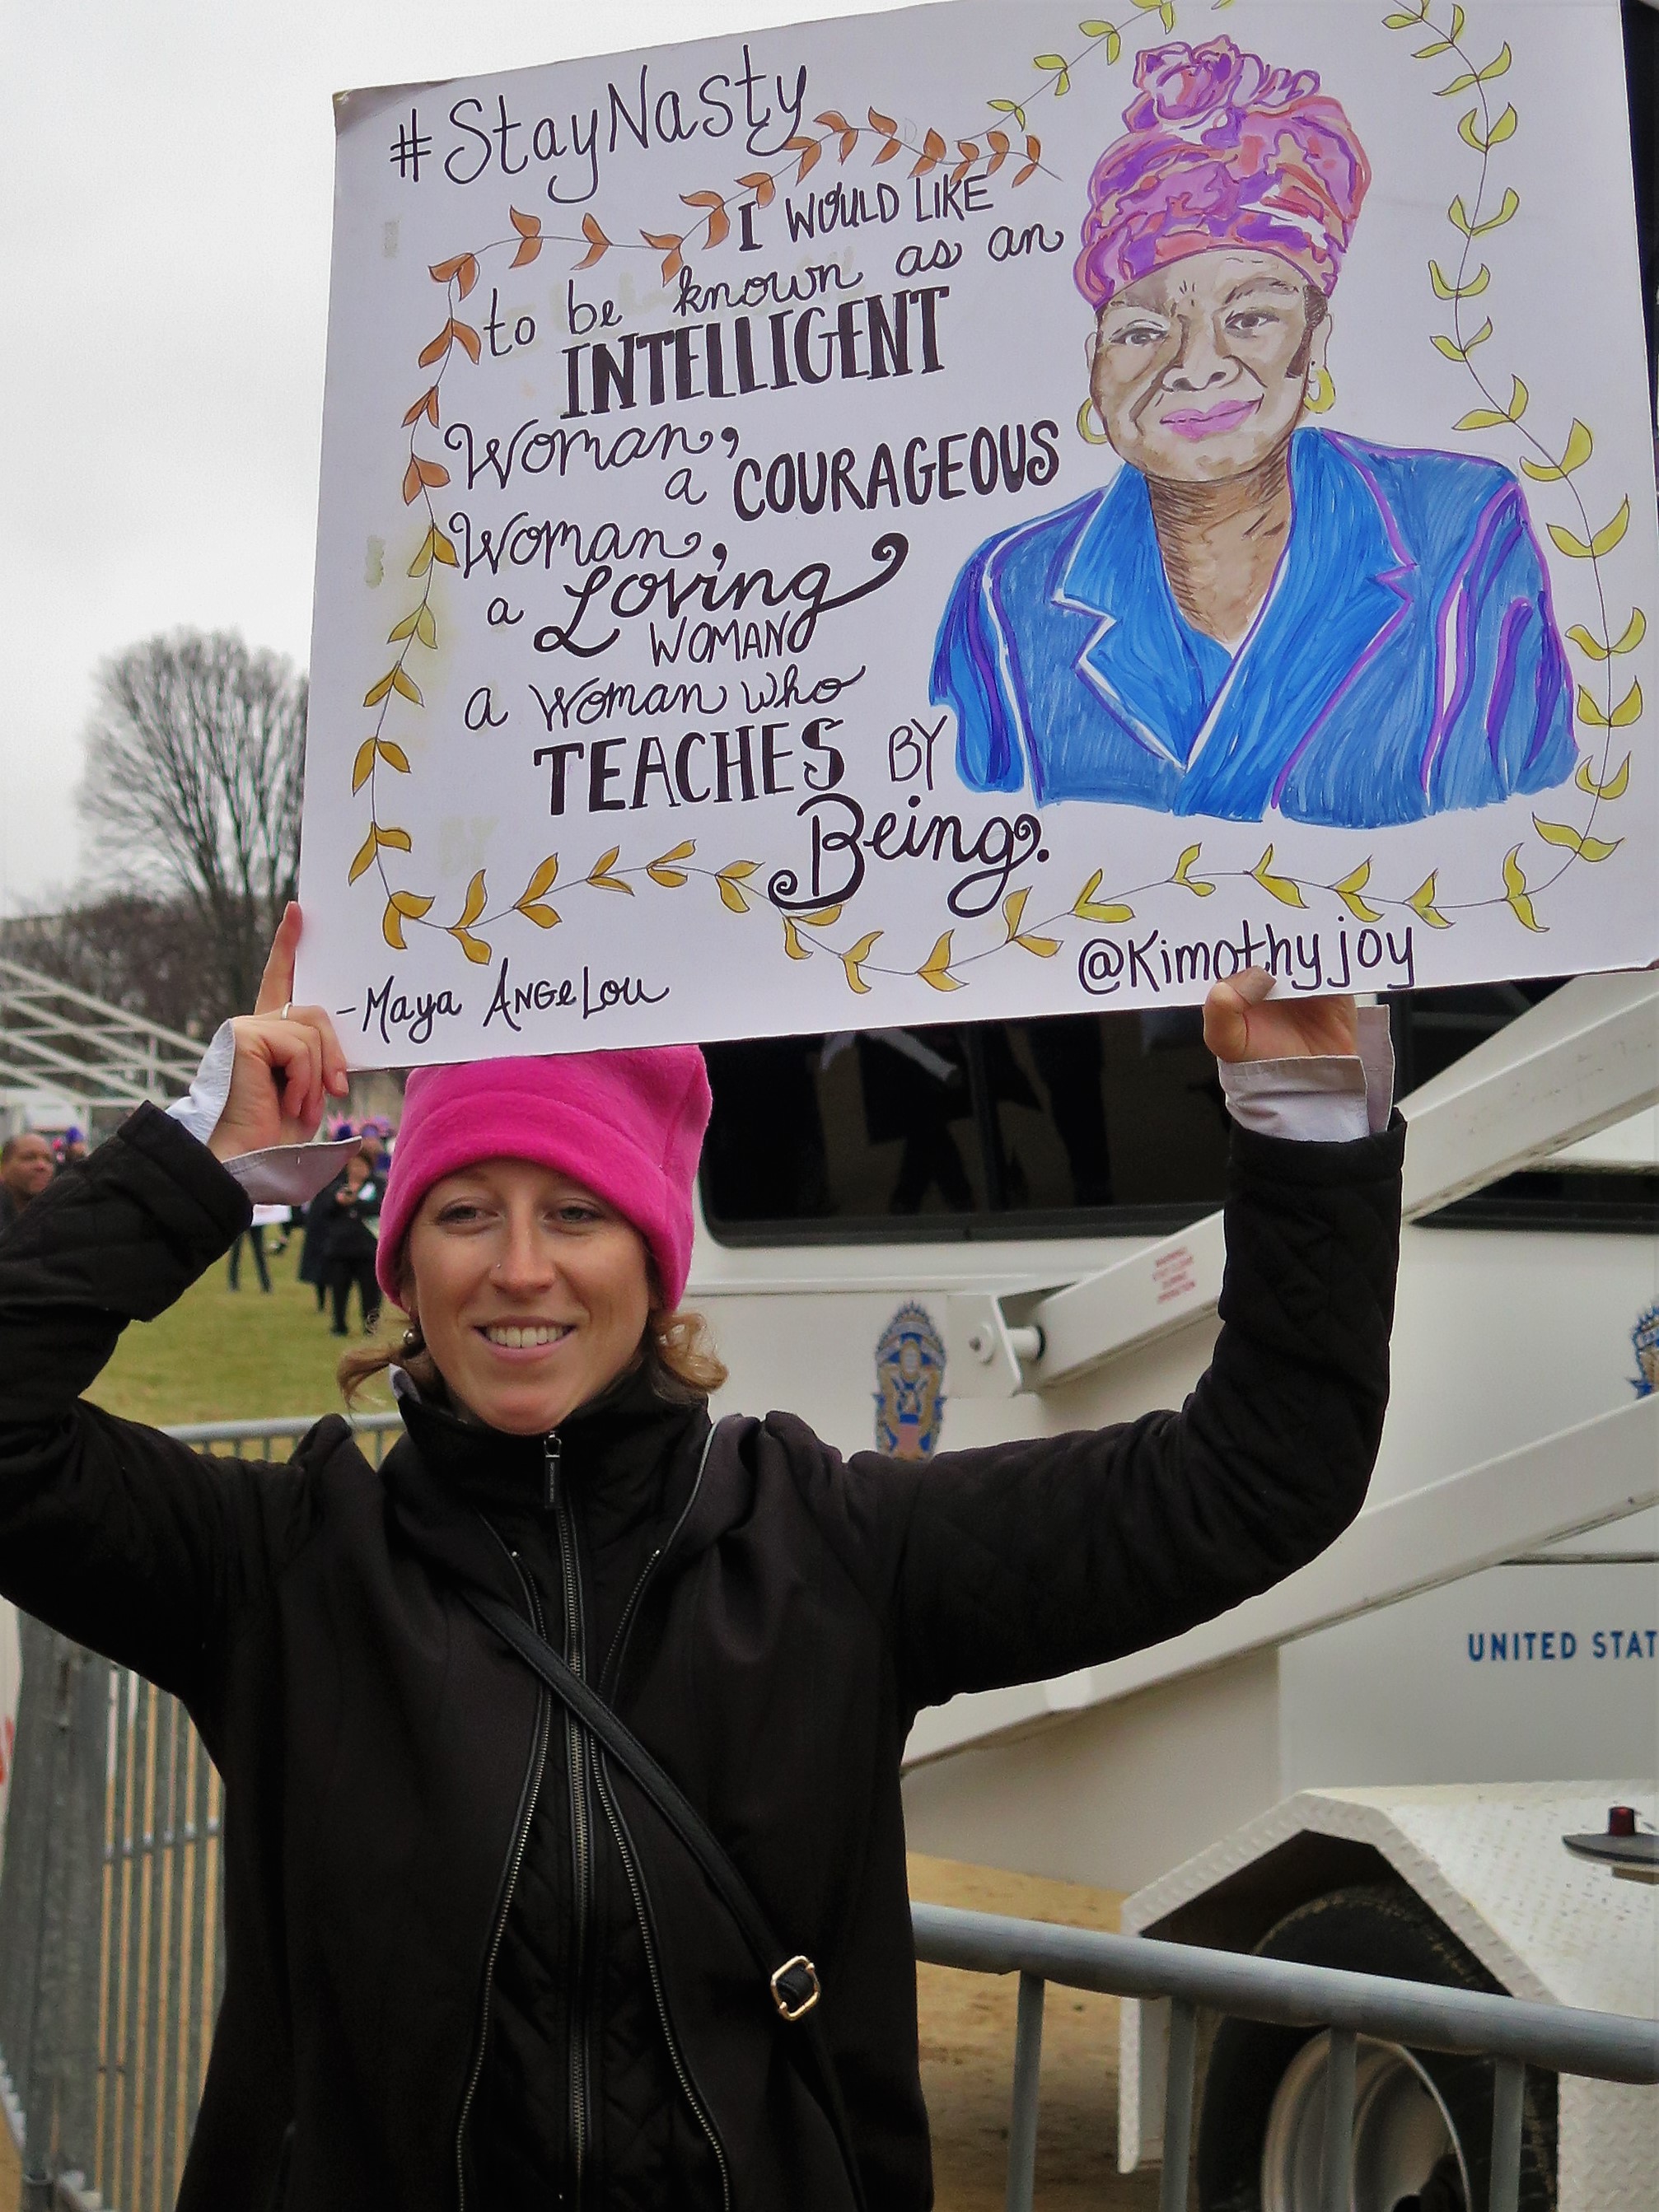 #StayNasty
I WOULD LIKE
to be known as an
INTELLIGENT
Woman,
a COURAGEOUS
Woman,
a Loving
WOMAN
a woman who
TEACHES BY
Being.
-Maya Angelou
@Kimothyjoy
UNITED STAT